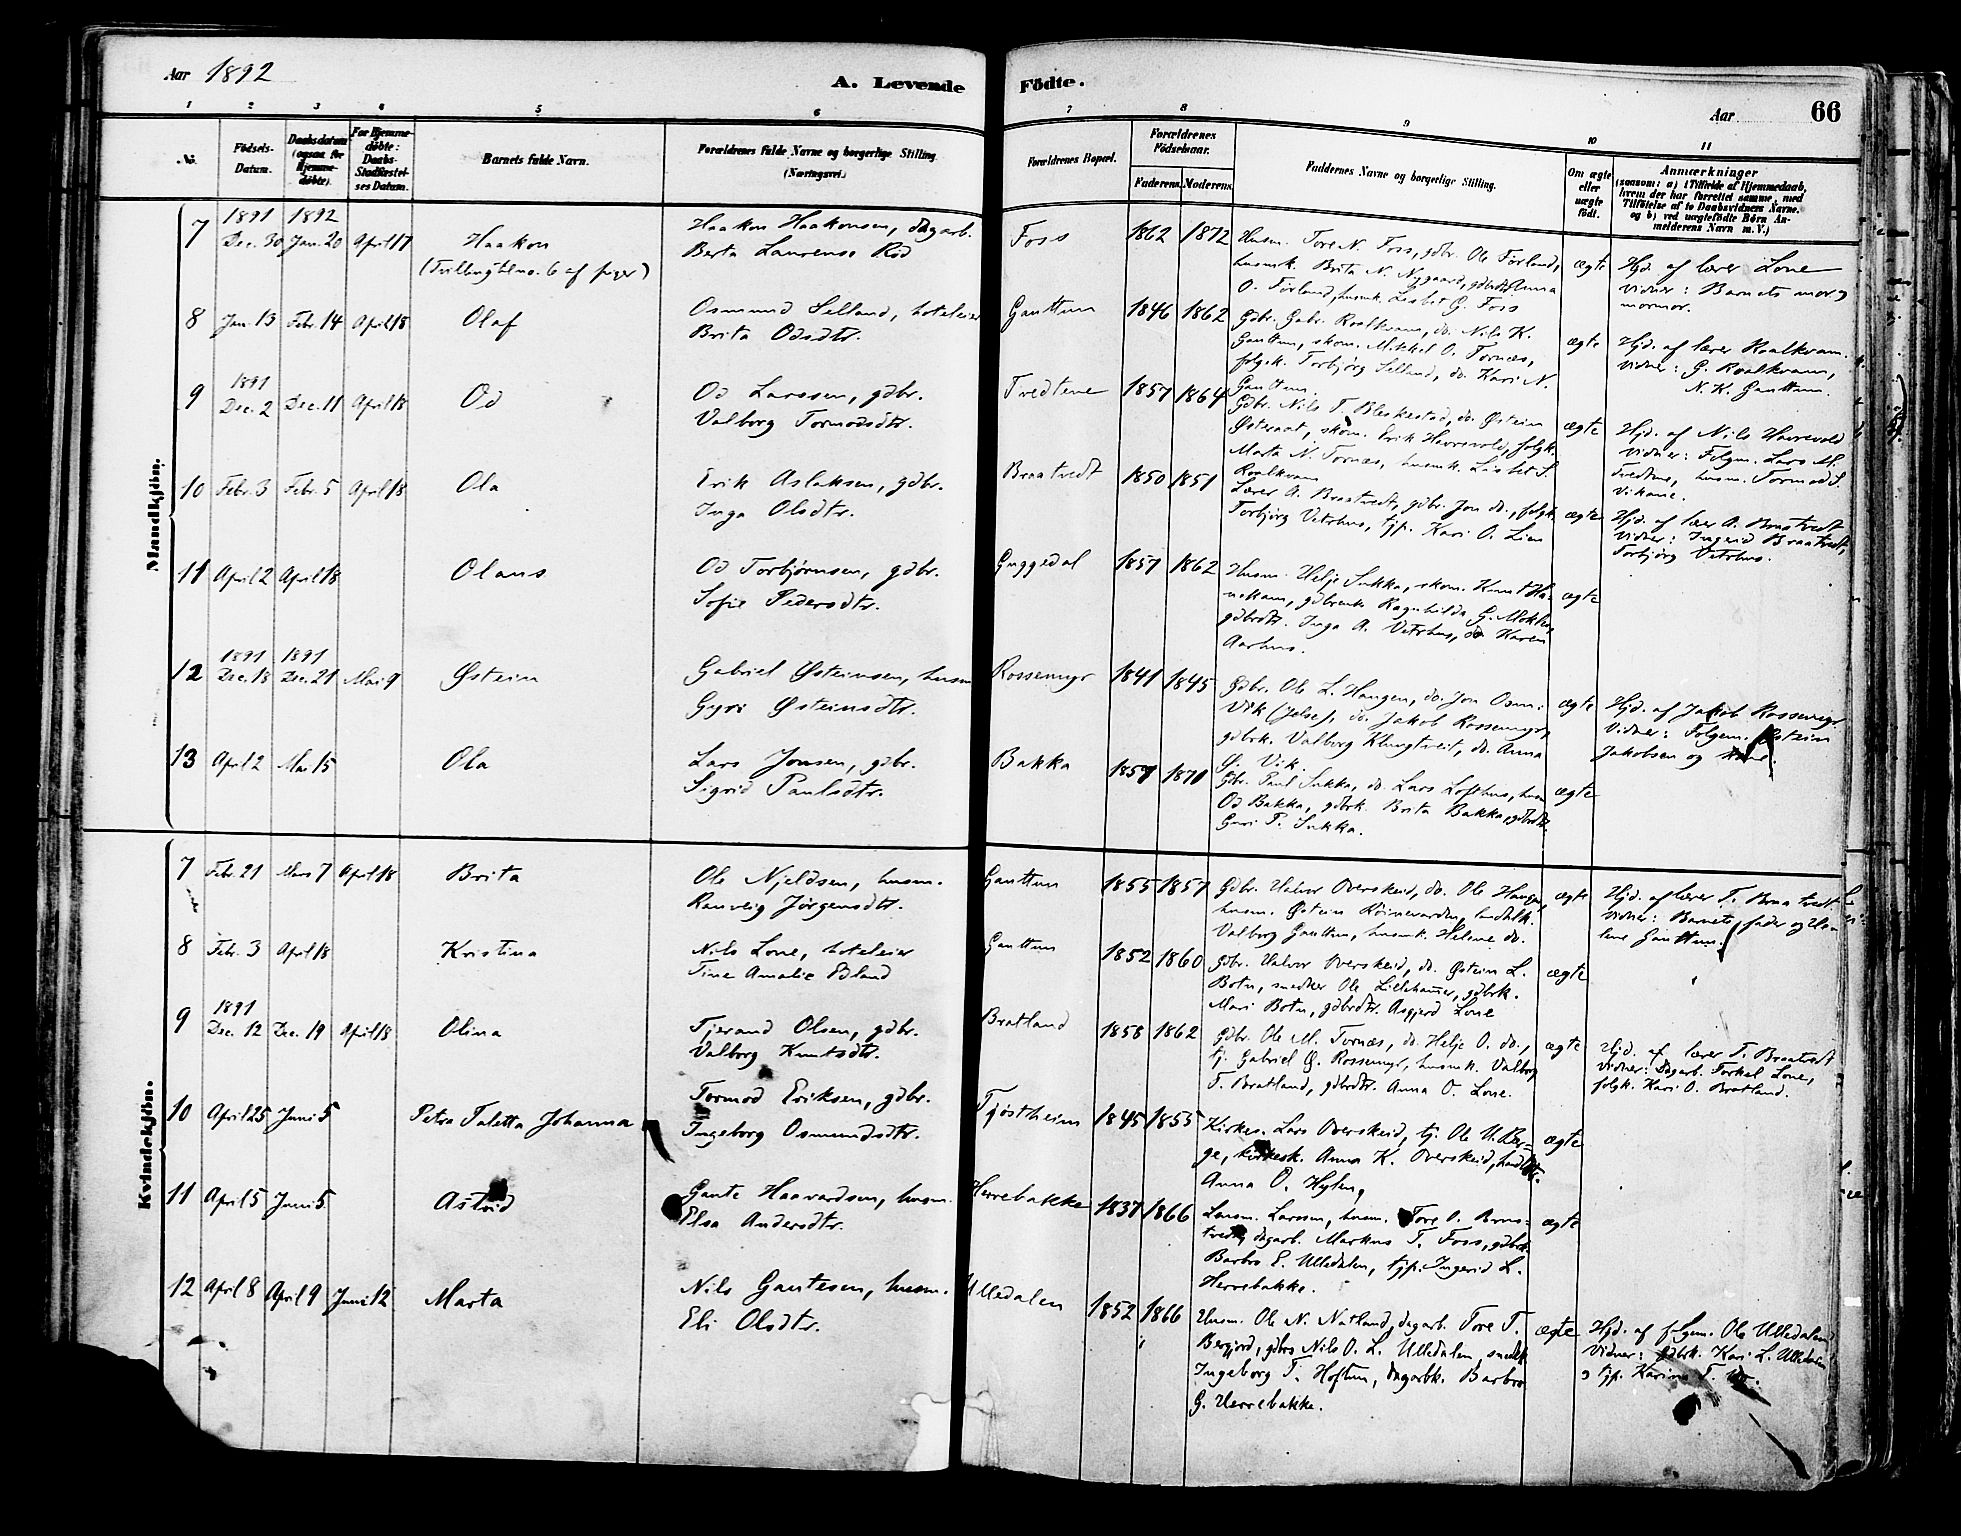 Aar 1892
A. Levende
Födte.
Aar
66
1 2 3 4 5 6 7 8 9 10 11
No.
Födsels-Datum.
Daabsdatum (ogsaa for Hjemme-døbte).
For Hjemme-døbte: Daabs-Stadfæstel-ses Datum.
Barnets fulde Navn.
Forældrenes fulde Navne og borgerlige Stilling. (Næringsvei.)
Forældrenes Bopæl.
Forældrenes Födselsaar.
Faderens. Moderens.
Faddernes Navne og borgerlige Stilling.
Om ægte eller uægte født.
Anmærkninger
(saasom: a) i Tilfælde af Hjemmedaab,
hvem der har forrettet samme, med
Tilföielse af to Daabsvidners Navne.
og b) ved uægtefödte Börn An-
melderens Navn m. V.)
Mandkjön.
7 1891 Dec. 30 1892 Jan. 20 April 17 Haakon
Haakon Haakonsen, dagarb.
Berta Laurense Rød
Foss 1862 1872
Husm. Tore N. Foss, gdbr. Ole Førland,
husmk. Brita N. Nygaard, gdbrdtr. Anna
O. Førland, husmk. Lisbet G. Foss
ægte
Hjd. af lærer Lone
Vidner: Barnets mor og
mormor.
8 Jan. 13 Febr. 14 April 18 Olaf
Osmund Selland, hoteleier
Brita Odsdtr.
Gauttun 1846 1862
Gdbr. Gabr. Roalkvam, do. Nils K.
Gauttun, skom. Mikkel O. Tornæs,
folgk. Torbjørg Selland, do. Kari N.
Gauttun.
ægte
Hjd. af lærer Roalkvam.
Vidner: G. Roalkvam,
N. K. Gauttun.
9 1891 Dec. 2 Dec. 11 April 18 Od
Od Larssen, gdbr.
Valborg Tormodsdtr.
Tvedtene 1857 1864
Gdbr. Nils T. Bleskestad, do. Østein
Østeraat, skom. Erik Hevrevold, folgk.
Marta N. Tornæs, husmk. Lisbet S.
Roalkvam
ægte
Hjd. af Nils Havrevold
Vidner: Folgm. Lars M.
Tvedtene, husm. Tormod S.
Vikane.
10 Febr. 3 Febr. 5 April 18 Ola
Erik Aslaksen, gdbr.
Inga Olsdtr.
Braatvedt 1850 1851
Lærer A. Braatvedt, gdbr. Jon do., folgk.
Torbjørg Vetrhus, tjp. Kari O. Lien
ægte
Hjd. af lærer A. Braatvedt
Vidner: Ingerid Braatvedt,
Torbjørg Vetrhus.
11 April 2 April 18 Olaus
Od Torbjørnsen, gdbr.
Sofie Pedersdtr.
Guggedal 1857 1862
Husm. Helje Sukka, skom. Knut Ha-
nakam, gdbrenk. Ragnhilda G. Møkle,
gdbrdtr. Inga A. Vetrhus, do. Karen
Aarhus.
ægte
12 1891 Dec. 18 1891 Dec. 21 Mai 9 Østein
Gabriel Østeinsen, husm.
Gyri Østeinsdtr.
Rossemyr 1841 1845
Gdbr. Ole L. Haugen, do. Jon Osm.
Vik (Jelse), do. Jakob Rossemyr,
gdbrk. Valborg Klungtveit, do. Anna
G. Vik.
ægte
Hjd. af Jakob Rossemyr
Vidner: Folgem. Østein
Jakobsen og
13 April 2 Mai 5 Ola
Lars Jonsen, gdbr.
Sigrid Paulsdtr.
Bakka 1857 1871
Gdbr. Paul Sukka, do. Lars Lofthus, husm.
Od Bakka, gdbrk. Brita Bakka, gdbrdtr.
Guri P. Sukka.
ægte
Kvindekjön.
7 Febr. 21 Mars 7 April 18 Brita
Ole Njeldsen, husm.
Ranveig Jørgensdtr.
Gauttun 1855 1857
Gdbr. Halvor Overskeid, do. Ole Haugen,
husm. Østein Røinevarden,
Valborg Gauttun, husmk. Helene do.
ægte
Hjd. af lærer T. Braatvedt.
Vidner: Barnets fader og Hele-
lene Gauttun.
8 Febr. 3 April 18 Kristina
Nils Lone, hoteleier
Tine Amalie Edland
Gauttun 1852 1860
Gdbr. Halvor Overskeid, do. Østein L.
Botn, snedker Ole Lillehamer, gdbrk.
Mari Botn, gdbrdtr. Asgjerd Lone
ægte
9 1891 Dec. 12 Dec. 19 April 18 Olina
Tjerand Olsen, gdbr.
Valborg Knutsdtr.
Bratland 1858 1862
Gdbr. Ole M. Tornæs, do. Helje O. do.,
tj. Gabriel G. Rossemyr, husmk. Valborg
T. Bratland, gdbrdtr. Anna O. Lone.
ægte
Hjd. af lærer T. Braatvedt
Vidner: Dagarb. Torkel Lone,
folgk. Kari O. Bratland.
10 April 25 Juni 5 Petra Taletta Johanna
Tormod Eriksen, gdbr.
Ingeborg Osmundsdtr.
Tjøstheim 1845 1855
Kirkes. Lars Overskeid, tj. Ole U. Ber-
ge, kirkesk. Anna K. Overskeid,
Anna O. Hylen,
ægte
11 April 5 Juni 5 Astrid
Gaute Haavardsen, husm.
Elsa Andersdtr.
Herrebakke 1837 1866
Lensm. Larsen, husm. Tore O. Braa-
tvedt, dagarb. Markus T. Foss, gdbrk.
Barbro E. Ulledalen, tjp. Ingerid L.
Herrebakke.
ægte
12 April 8 April 9 Juni 12 Marta
Nils Gautesen, husm.
Eli Olsdtr.
Ulledalen 1852 1866
Husm. Ole N. Natland, dagarb. Tore T.
Bergjord, gdbrs Nils O. L. Ulledalen,
Ingeborg T. Hoftun, dagarbk. Barbro
G. Herrebakke.
ægte
Hjd. af folgem. Ole Ulledalen
Vidner: gdbrk. Kari L. Ulledalen
o tjp. Karina T.